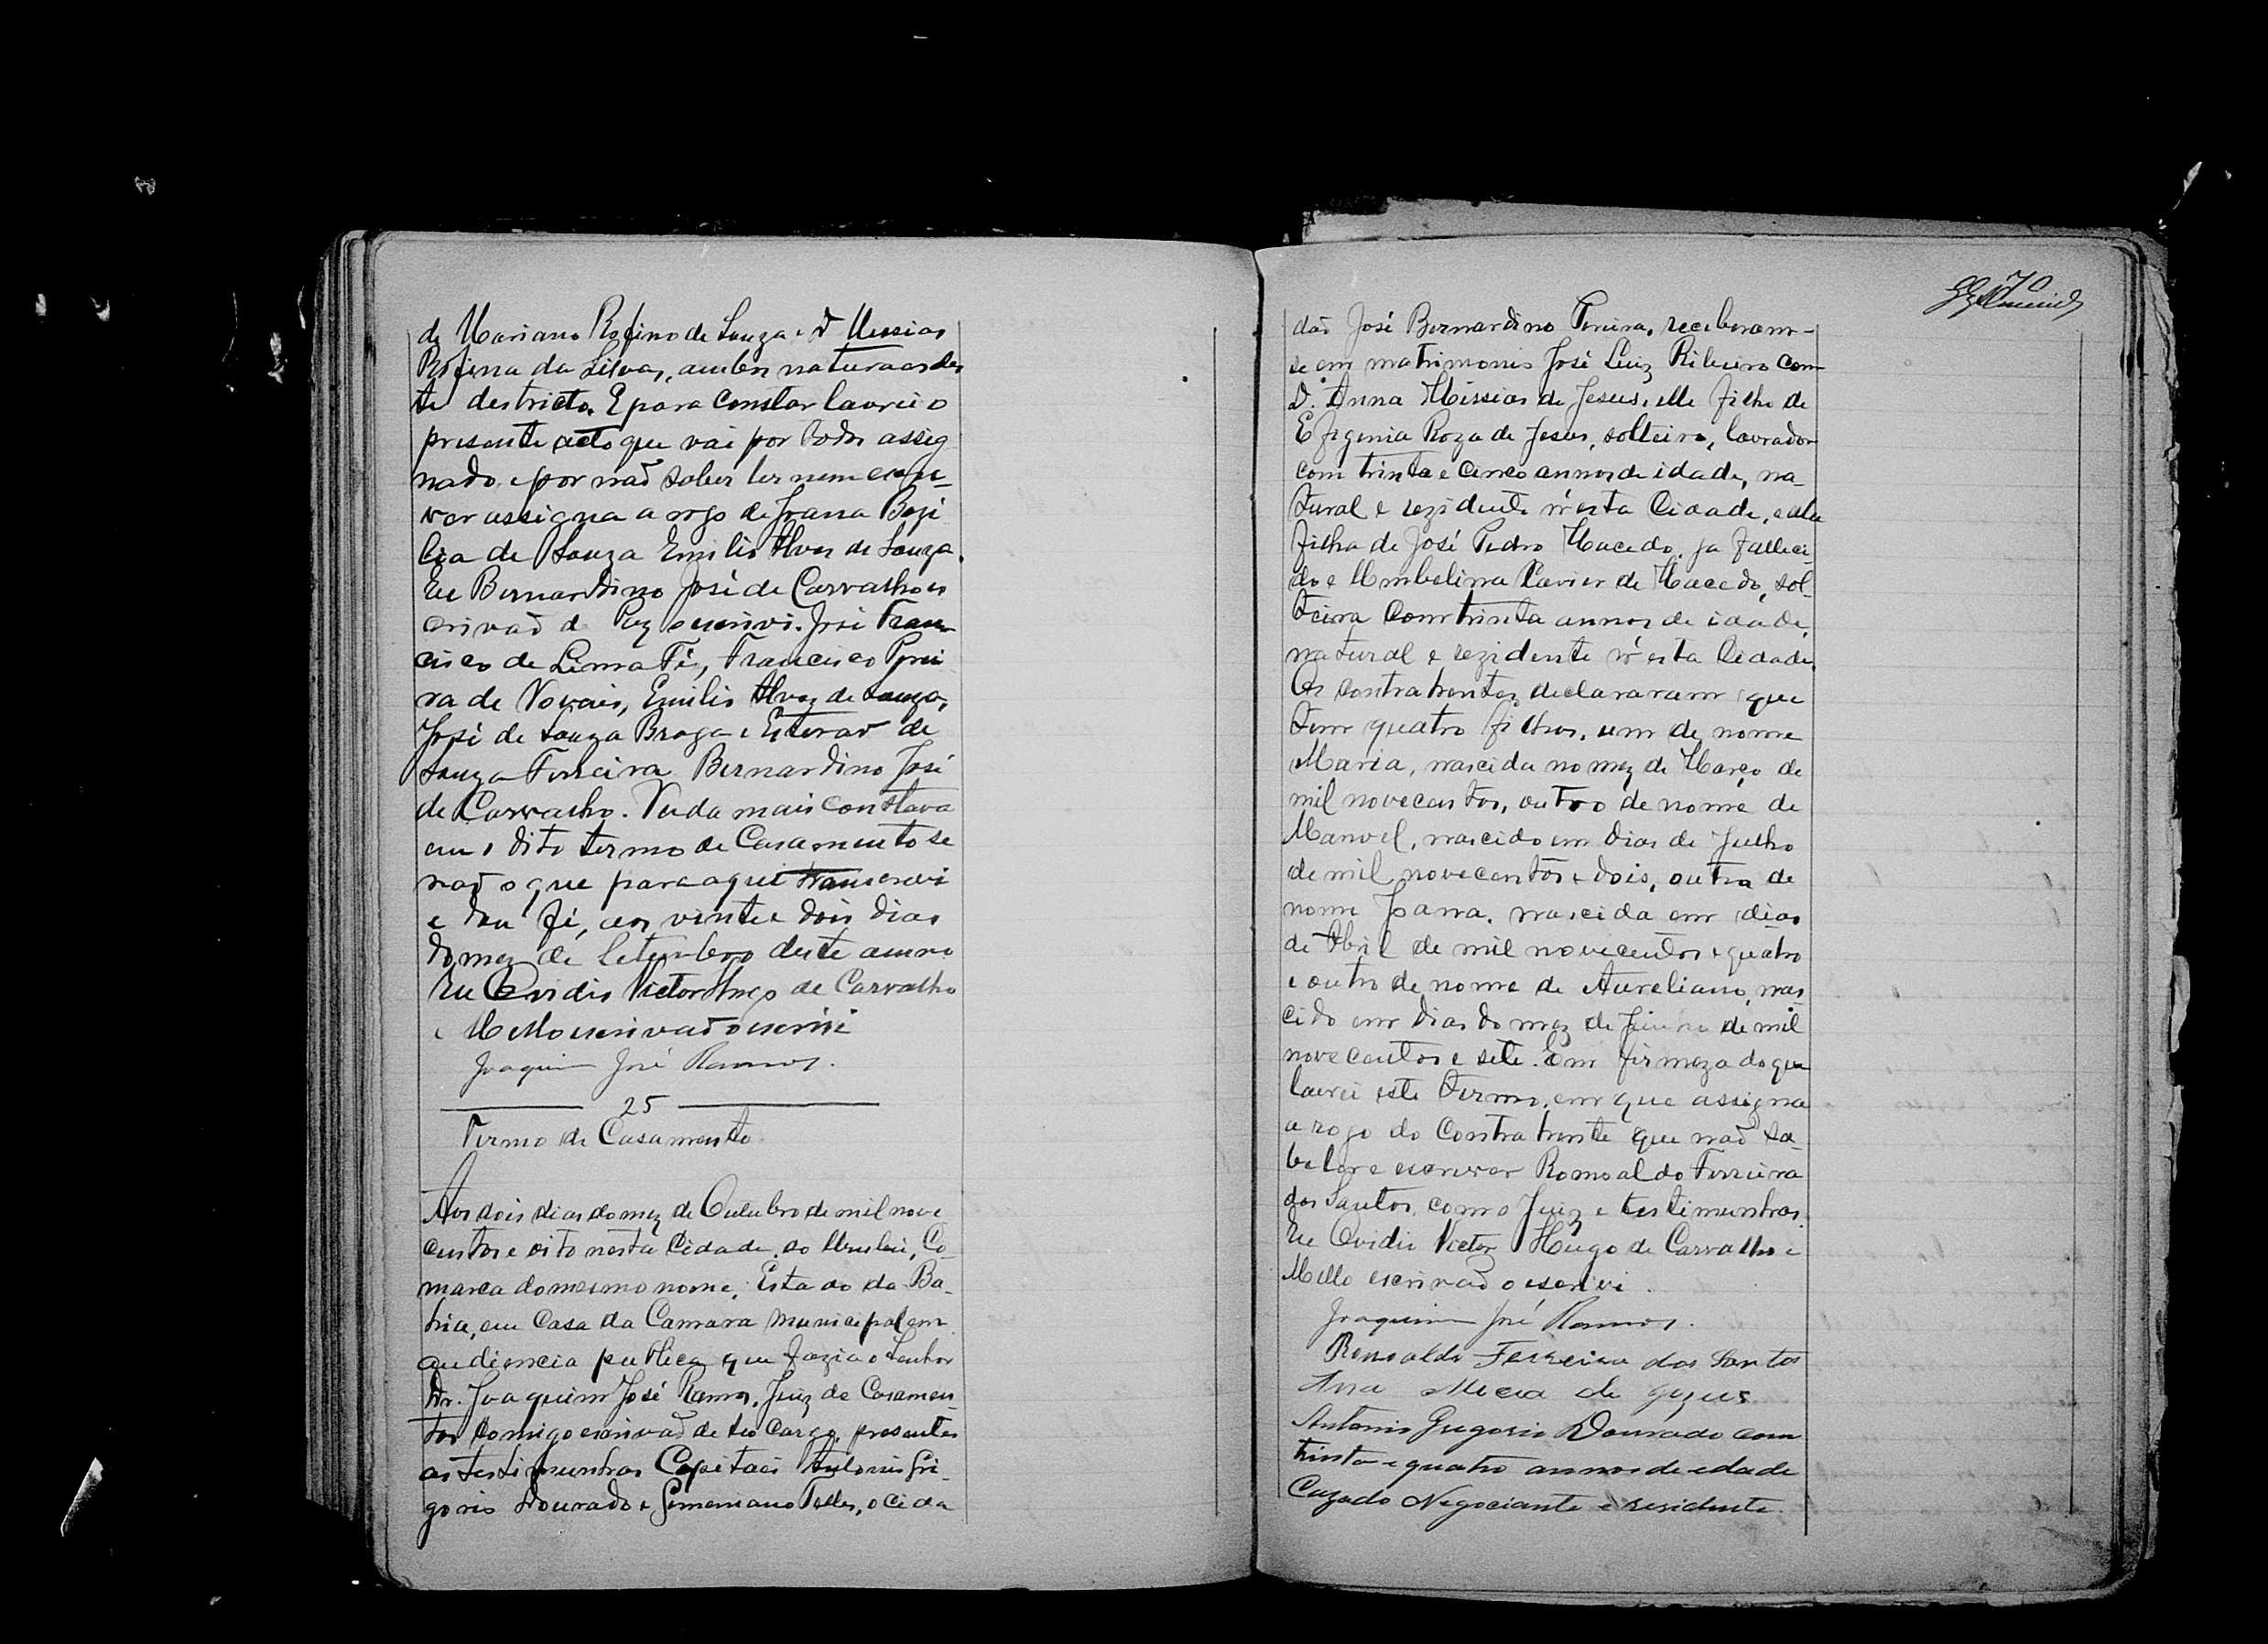 de Mariano Rofino de Souza e D Messias
Rofina da Silva, ambos naturaes des
te destricto. E para constar lavrei o
presente acto que vai por todos assig
nado e por não saber ler nem escre-
ver assigna a rogo de Joana Bazi
lia de Souza Emilio Alves de Souza.
Eu Bernardino José de Carvalho es
crivaõ de Paz escrivi. José Fran
cisco de Lima Fé, Francisco Perei
ra de Novais, Emilio Alves de Souza,
José de Souza Braga e Estevaõ de
Souza Ferreira Bernardino José
de Carvalho. Nada mais constava
em o dito termo de Casamento se
naõ o que para aqui transcrevi
e dou fé, aos vinte e dois dias
do mez de Setembro deste anno
Eu Ovidio Victor Hugo de Carvalho
e Mello escrivaõ o escrivi
Joaquim José Ramos.
25
Termo de Casamento
Aos dois dias do mez de Outubro de mil nove
centos e oito nesta Cidade, do Ilheu, Co-
marca do mesmo nome, Estado da Ba-
hia, em Casa da Camara Municipal em
audiencia publica que fazia o Senhor
Dr. Joaquim José Ramos, Juiz de Casamen-
tos comigo escrivaõ de seo Cargo, presentes
as testimunhas Capitaõ Antonio Gri-
gorio Dourado e Telles, o Cida
70
daõ José Bernardino Pereira, receberam-
se em matrimonio José Luiz Ribeiro com
D. Anna Messias de Jesus, elle filho de
Efigenia Roza de Jesus, solteiro, lavrador
com trinta e cinco annos de idade, na-
tural e rezidente n'esta Cidade, e ella
filha de José Pedro Macedo, ja falleci-
do e Umbelina Xavier de Macedo, sol-
teira com trinta annos de idade,
natural e rezidente n'esta Cidade.
Os contrahentes declararam que
tem quatro filhos, um de nome
Maria, nascida no mez de Março de
mil novecentos, outro de nome de
Manoel, nascido em dias de Julho
de mil novecentos e dois, outra de
nome Joana, nascida em dias
de Abril de mil novecentos e quatro
e outro de nome de Aureliano, nas-
cido em dias do mez de Junho de mil
novecentos e sete. Em firmeza do que
lavrei este termo, em que assigna
a rogo do Contrahente que naõ sa-
be ler e escrever Romoaldo Ferreira
dos Santos, como Juiz e testimunhas.
Eu Ovidio Victor Hugo de Carvalho e
Mello escrivaõ o escrivi.
Joaquim José Ramos.
Romoaldo Ferreira dos Santos
Ana Mecia de gezus
Antonio Gregorio Dourado com
trinta e quatro annos de edade
Cazado Negociante e residente